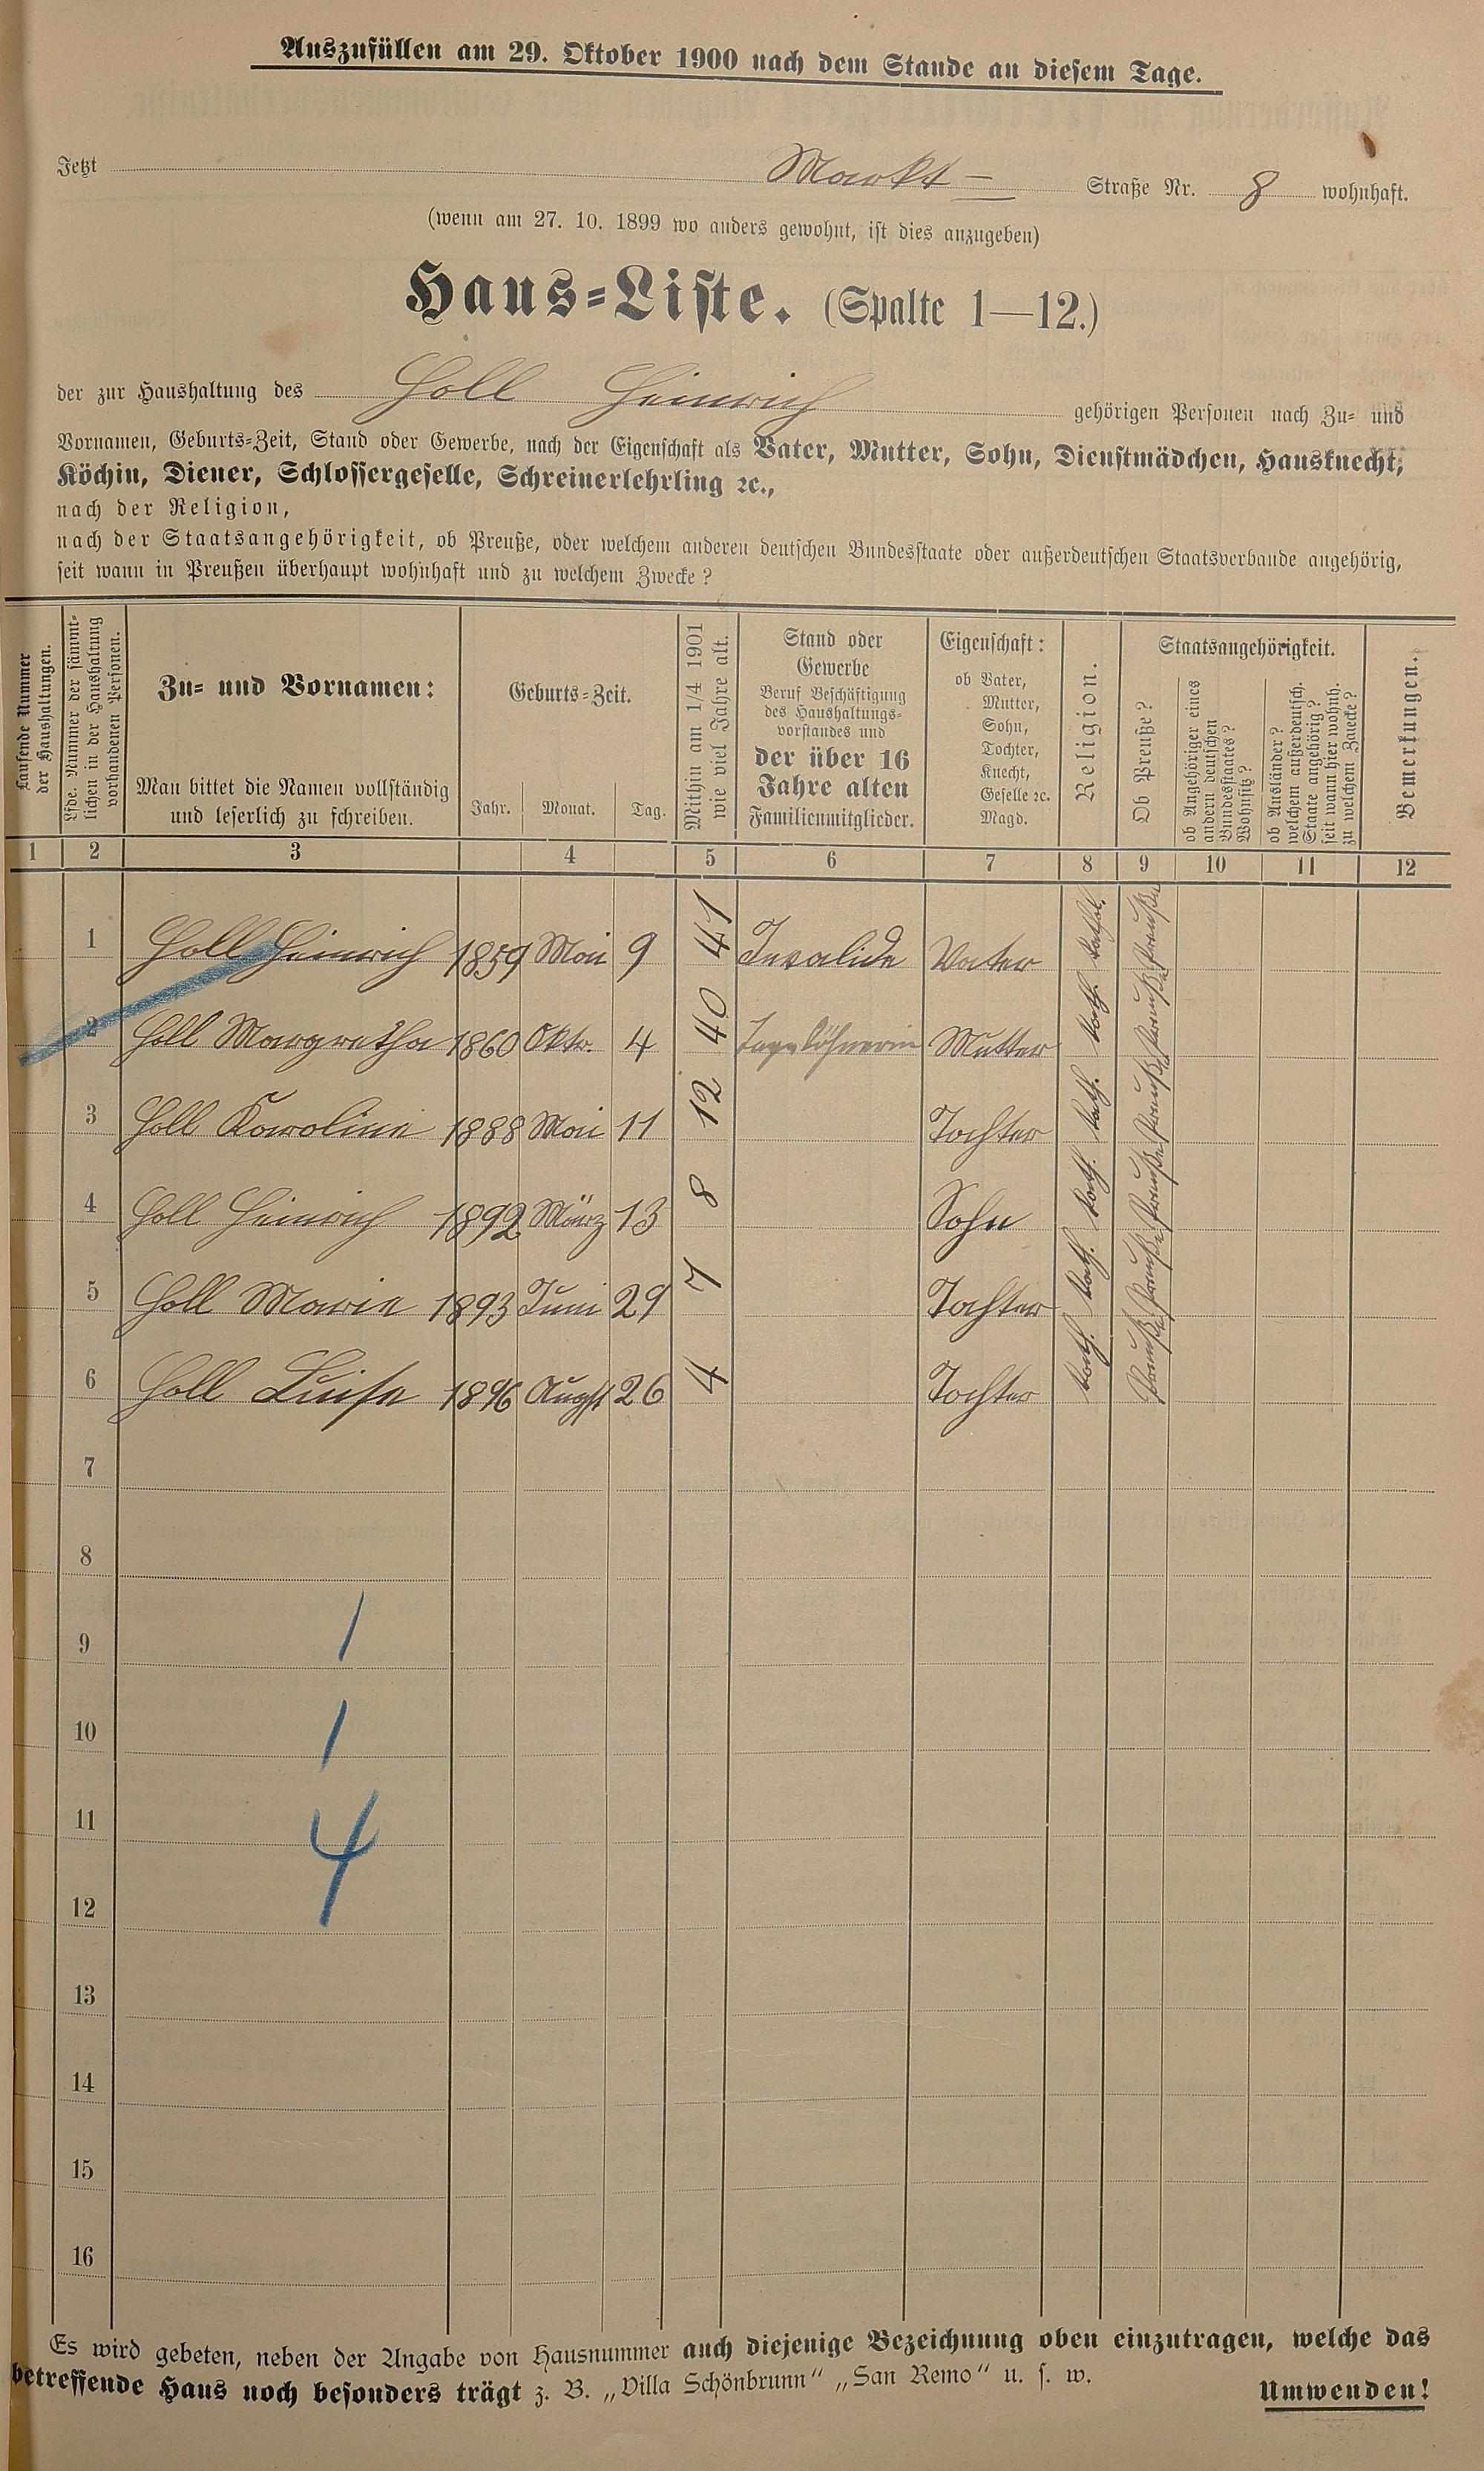 Auszufüllen am 29. Oktober 1900 nach dem Stande an diesem Tage.
Jetzt Markt- Straße Nr. 8 wohnhaft.
(wenn am 27. 10. 1899 wo anders gewohnt, ist dies anzugeben)
Haus-Liste. (Spalte 1—12.)
der zur Haushaltung des Holl Heinrich gehörigen Personen nach Zu- und
Vornamen, Geburts-Zeit, Stand oder Gewerbe, nach der Eigenschaft als Vater, Mutter, Sohn, Dienstmädchen, Hausknecht,
Köchin, Diener, Schlossergeselle, Schreinerlehrling ꝛc.,
nach der Religion,
nach der Staatsangehörigkeit, ob Preuße, oder welchem anderen deutschen Bundesstaate oder außerdeutschen Staatsverbande angehörig,
seit wann in Preußen überhaupt wohnhaft und zu welchem Zwecke?
Laufende Nummer
der Haushaltungen.
Lfde. Nummer der sämmt-
lichen in der Haushaltung
vorhandenen Personen.
Zu- und Vornamen:
Man bittet die Namen vollständig
und leserlich zu schreiben.
Geburts-Zeit.
Jahr. Monat. Tag.
Mithin am 1/4 1901
wie viel Jahre alt.
Stand oder
Gewerbe
Beruf Beschäftigung
des Haushaltungs-
vorstandes und
der über 16
Jahre alten
Familienmitglieder.
Eigenschaft:
ob Vater,
Mutter,
Sohn,
Tochter,
Knecht,
Geselle ꝛc.
Magd.
Religion.
Staatsangehörigkeit.
Ob Preuße?
ob Angehöriger eines
andern deutschen
Bundesstaates?
Wohnsitz?
ob Ausländer?
welchem außerdeutsch.
Staate angehörig?
seit wann hier wohnh.
zu welchem Zwecke?
Bemerkungen.
1 2 3 4 5 6 7 8 9 10 11 12
1 Holl Heinrich 1859 Mai 9 41 Invalide Vater kathol. Preuße
2 Holl Margretha 1860 Oktr. 4 40 Tagelöhnerin Mutter kath. Preuße
3 Holl Karoline 1888 Mai 11 12 Tochter kath. Preuße
4 Holl Heinrich 1892 März 13 8 Sohn kath. Preuße
5 Holl Marie 1893 Juni 29 7 Tochter kath. Preuße
6 Holl Luise 1896 Augst 26 4 Tochter kath. Preuße
7
8
9 1
10 1
11 4
12
13
14
15
16
Es wird gebeten, neben der Angabe von Hausnummer auch diejenige Bezeichnung oben einzutragen, welche das
betreffende Haus noch besonders trägt z. B. „Villa Schönbrunn" „San Remo" u. s. w.
Umwenden!